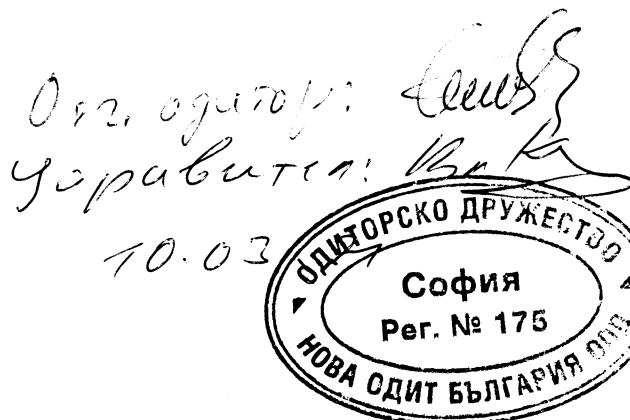 Отг. одитор:
Управител:
10.03
ОДИТОРСКО ДРУЖЕСТВО
София
Рег. № 175
НОВА ОДИТ БЪЛГАРИЯ ООД